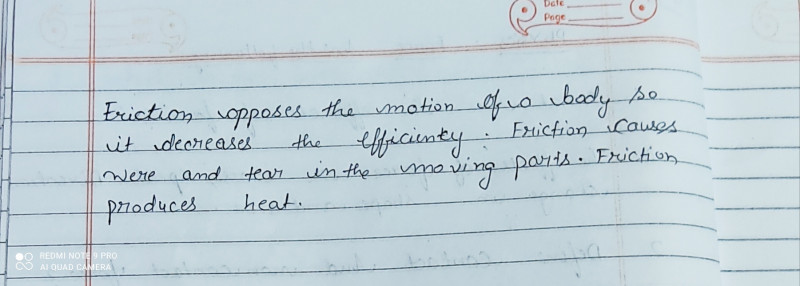 Date
Page
Friction opposes the motion of a body so
it decreases the efficienty. Friction causes
were and tear in the moving parts. Friction
produces heat.
REDMI NOTE 9 PRO
AI QUAD CAMERA